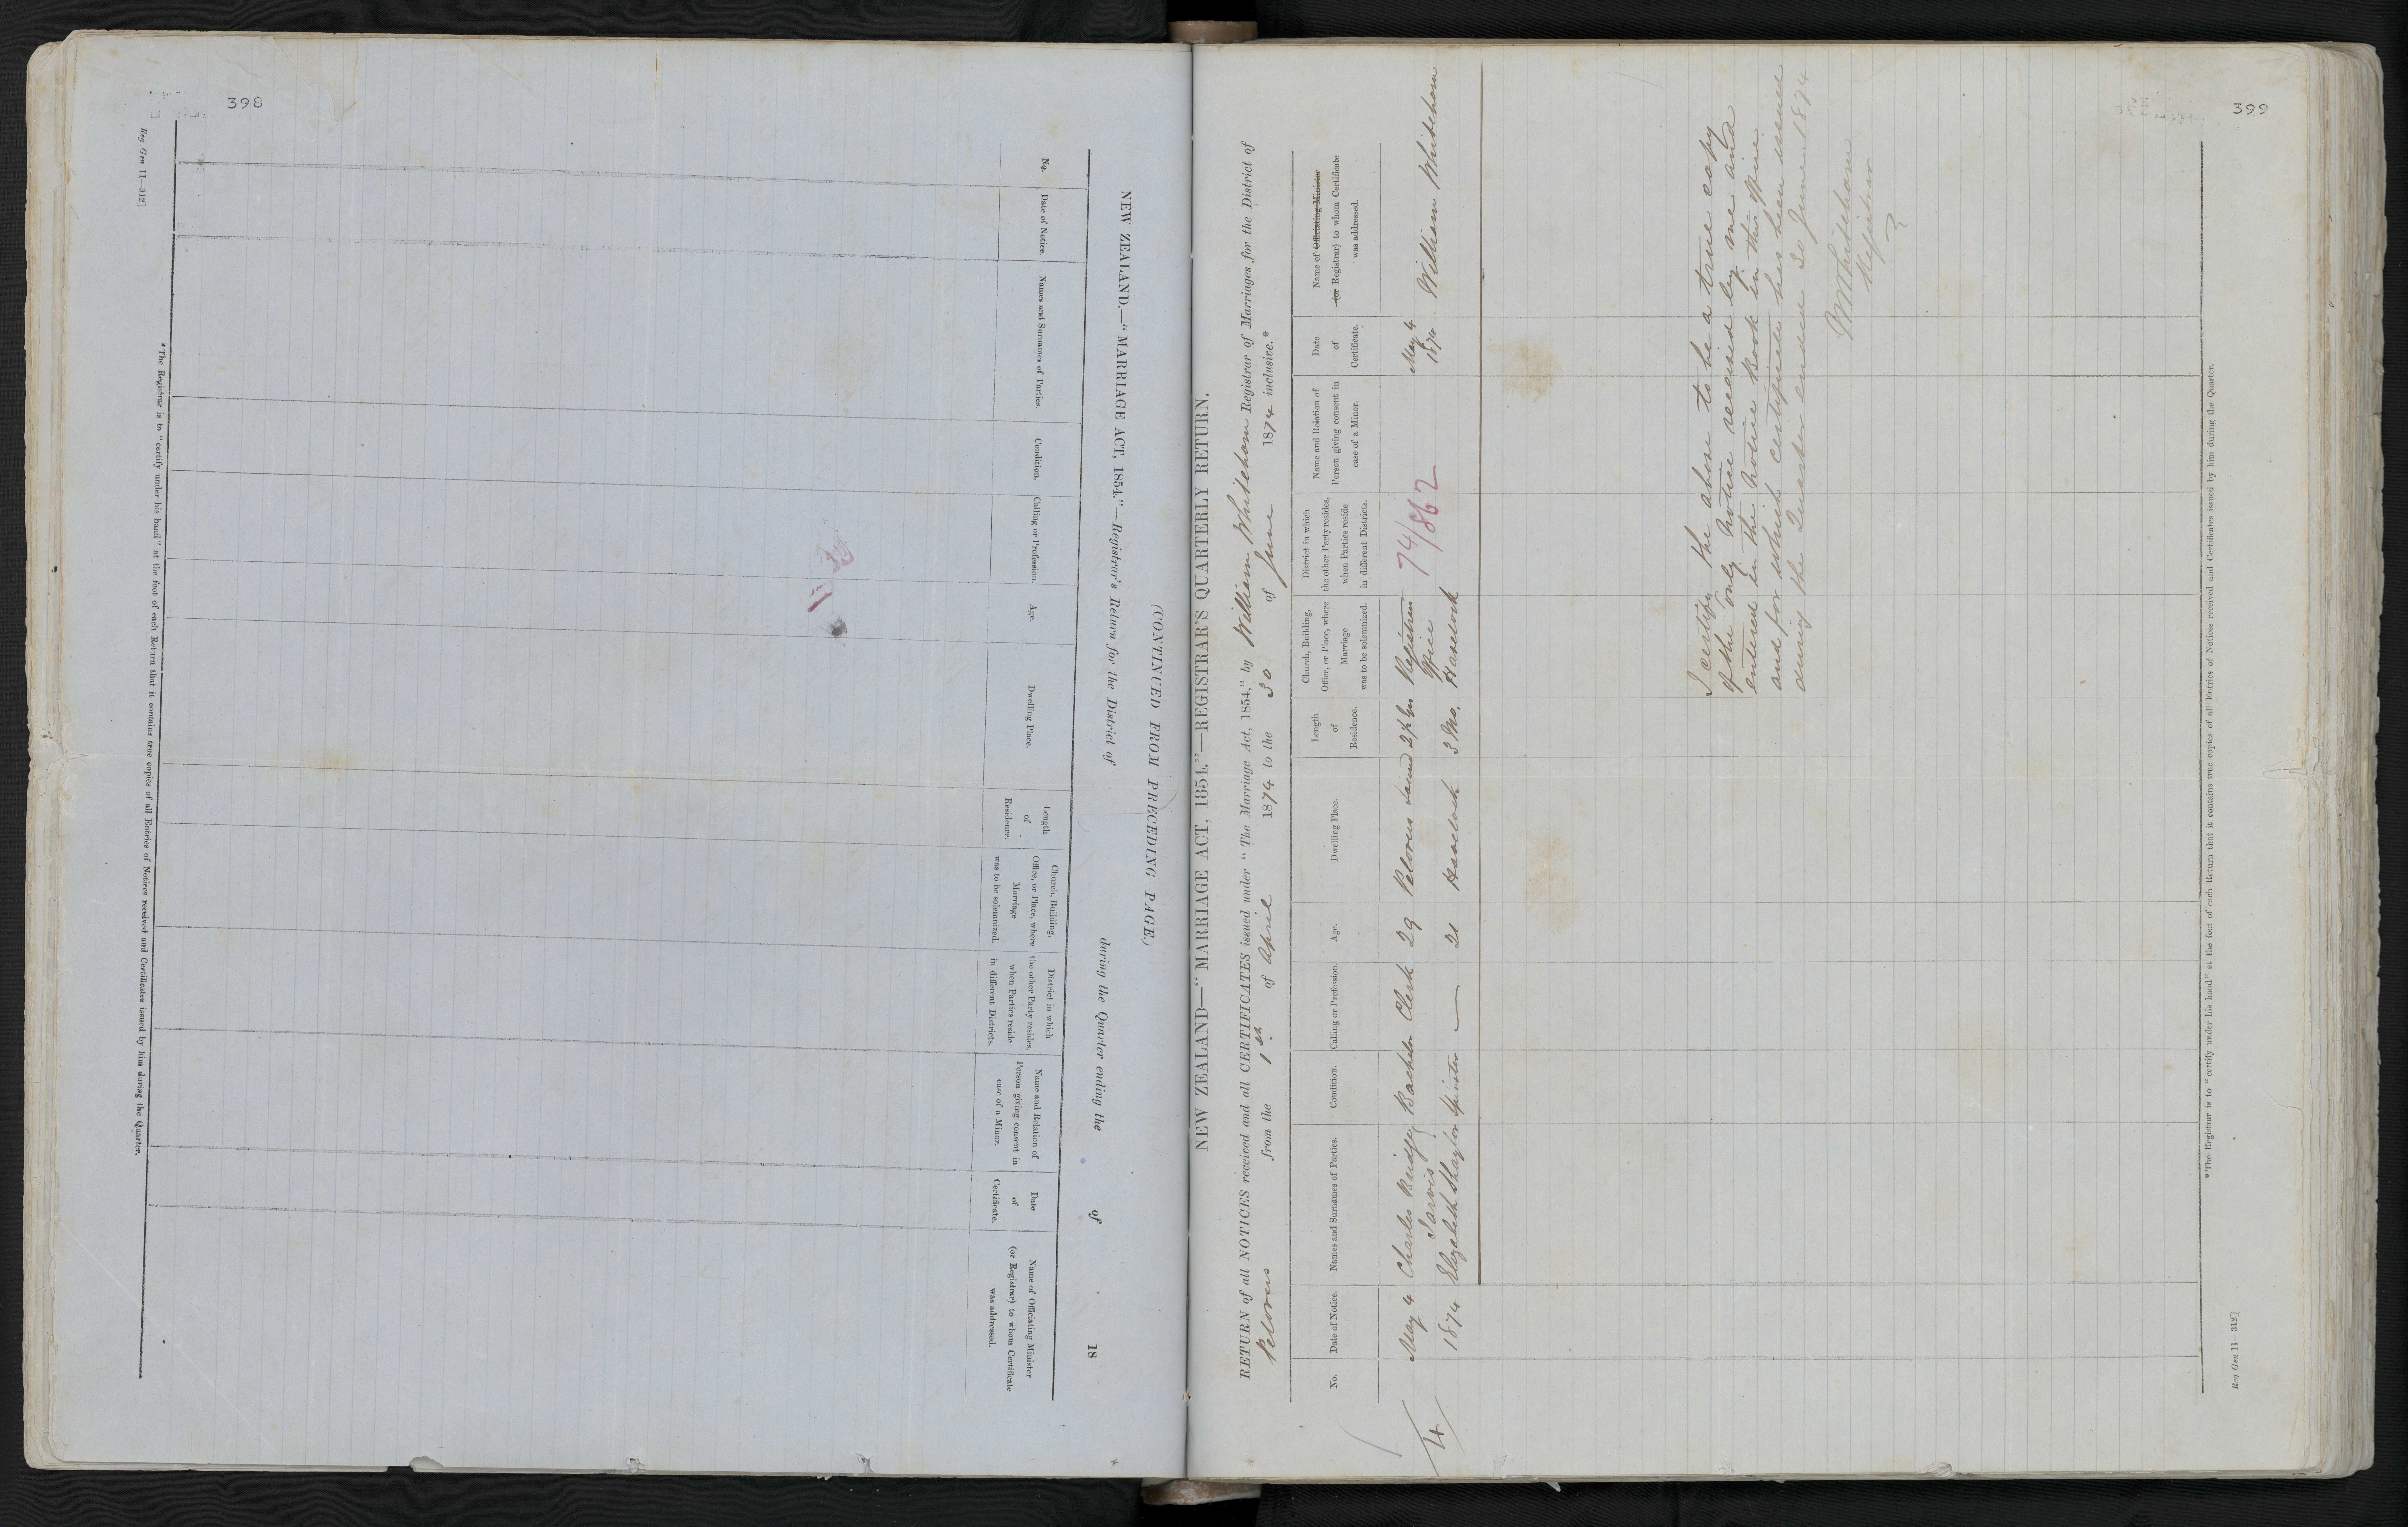 398
(CONTINUED FROM PRECEDING PAGE.)
NEW ZEALAND.—"MARRIAGE ACT, 1854."—Registrar's Return for the District of during the Quarter ending the of 18
No.
Date of Notice.
Names and Surnames of Parties.
Condition.
Calling or Profession.
Age.
Dwelling Place.
Length
of
Residence.
Church, Building,
Office, or Place, where
Marriage
was to be solemnized.
District in which
the other Party resides,
when Parties reside
in different Districts.
Name and Relation of
Person giving consent in
case of a Minor.
Date
of
Certificate.
Name of Officiating Minister
(or Registrar) to whom Certificate
was addressed.
* The Registrar is to "certify under his hand" at the foot of each Return that it contains true copies of all Entries of Notices received and Certificates issued by him during the Quarter.
Reg Gen 11—312]
399
NEW ZEALAND—"MARRIAGE ACT, 1854."—REGISTRAR'S QUARTERLY RETURN.
RETURN of all NOTICES received and all CERTIFICATES issued under "The Marriage Act, 1854," by William Whitehorn Registrar of Marriages for the District of
Pelorus from the 1st of April 1874 to the 30 of June 1874 inclusive.*
No.
Date of Notice.
Names and Surnames of Parties.
Condition.
Calling or Profession.
Age.
Dwelling Place.
Length
of
Residence.
Church, Building,
Office, or Place, where
Marriage
was to be solemnized.
District in which
the other Party resides,
when Parties reside
in different Districts.
Name and Relation of
Person giving consent in
case of a Minor.
Date
of
Certificate.
Name of Officiating Minister
(or Registrar) to whom Certificate
was addressed.
4
May 4
1874
Charles Bridge
Jarvis
Elizabeth Shaylor
Bachelor
Spinster
Clerk
—
29
21
Pelorus Sound
Havelock
2½ yrs
3 Mo.
Registrars
Office
Havelock
74/862
May 4
1874
William Whitehorn
I certify the above to be a true copy
of the only Notice received by me and
entered in the Notice Book in this Office
and for which certificate has been issued
during the Quarter ended 30 June 1874
W Whitehorn
Registrar
* The Registrar is to "certify under his hand" at the foot of each Return that it contains true copies of all Entries of Notices received and Certificates issued by him during the Quarter.
Reg Gen 11—312]